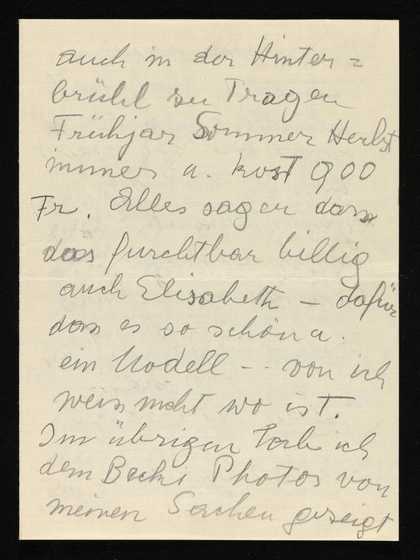 auch in der Hinter=
brühl zu Tragen
Frühjar Sommer Herbst
immer u. kost 900
Fr. Alles sagen dass
das furchtbar billig
auch Elisabeth – dafür
dass es so schön u.
ein Modell -- von ich
weis nicht wo ist.
Im übrigen hab ich
dem Becki Photos von
meinen Sachen gezeigt